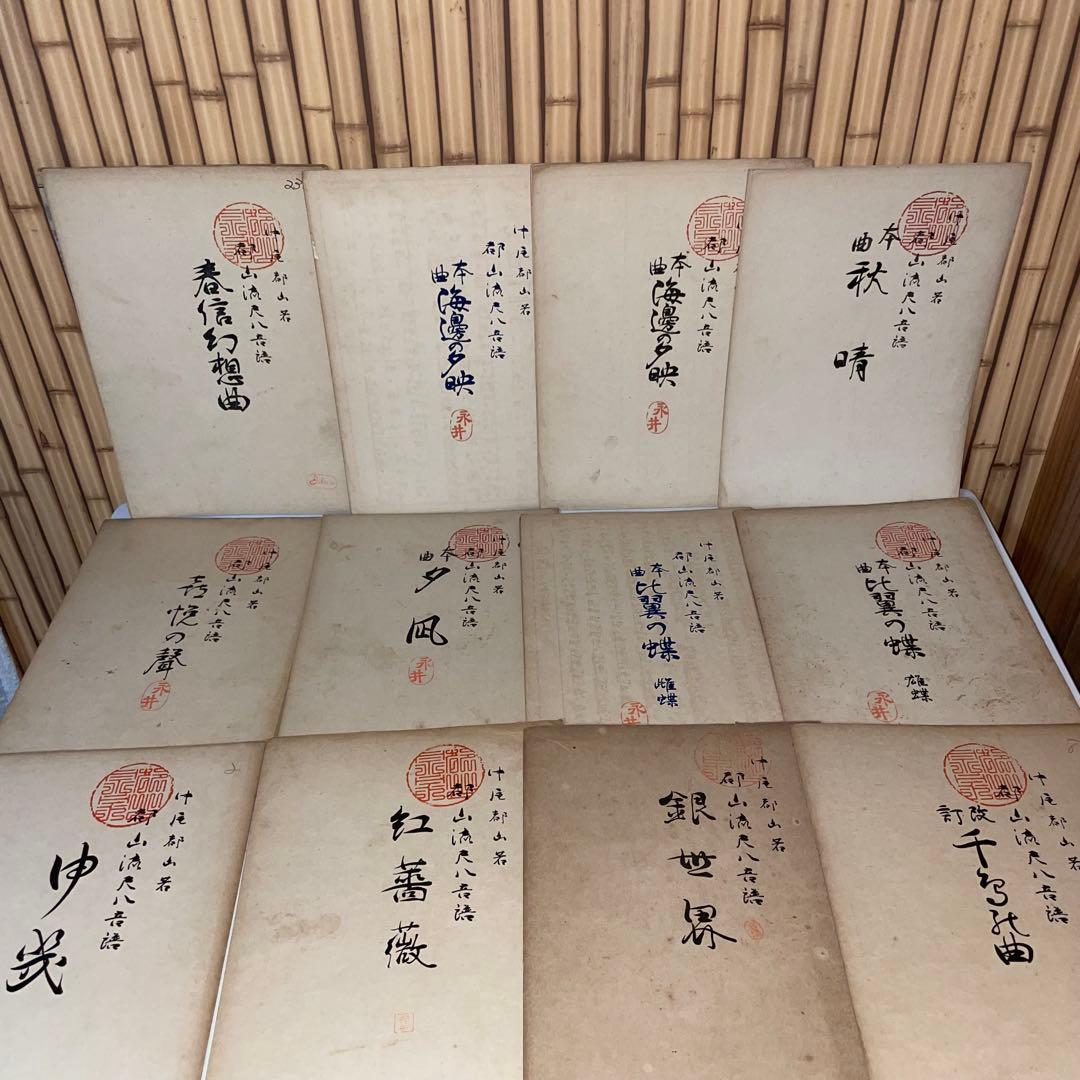 中尾都山著
都山流尺八音譜
春信幻想曲
23
中尾都山著
都山流尺八音譜
本曲
海邊の夕映
永井
中尾都山著
都山流尺八音譜
本曲
海邊の夕映
永井
中尾都山著
都山流尺八音譜
本曲
秋晴
中尾都山著
都山流尺八音譜
喜悦の聲
永井
中尾都山著
都山流尺八音譜
本曲
夕凪
永井
中尾都山著
都山流尺八音譜
本曲
比翼の蝶
雌蝶
永井
中尾都山著
都山流尺八音譜
本曲
比翼の蝶
雄蝶
永井
中尾都山著
都山流尺八音譜
中尾都山著
都山流尺八音譜
紅薔薇
中尾都山著
都山流尺八音譜
銀世界
中尾都山著
都山流尺八音譜
改訂
千鳥の曲